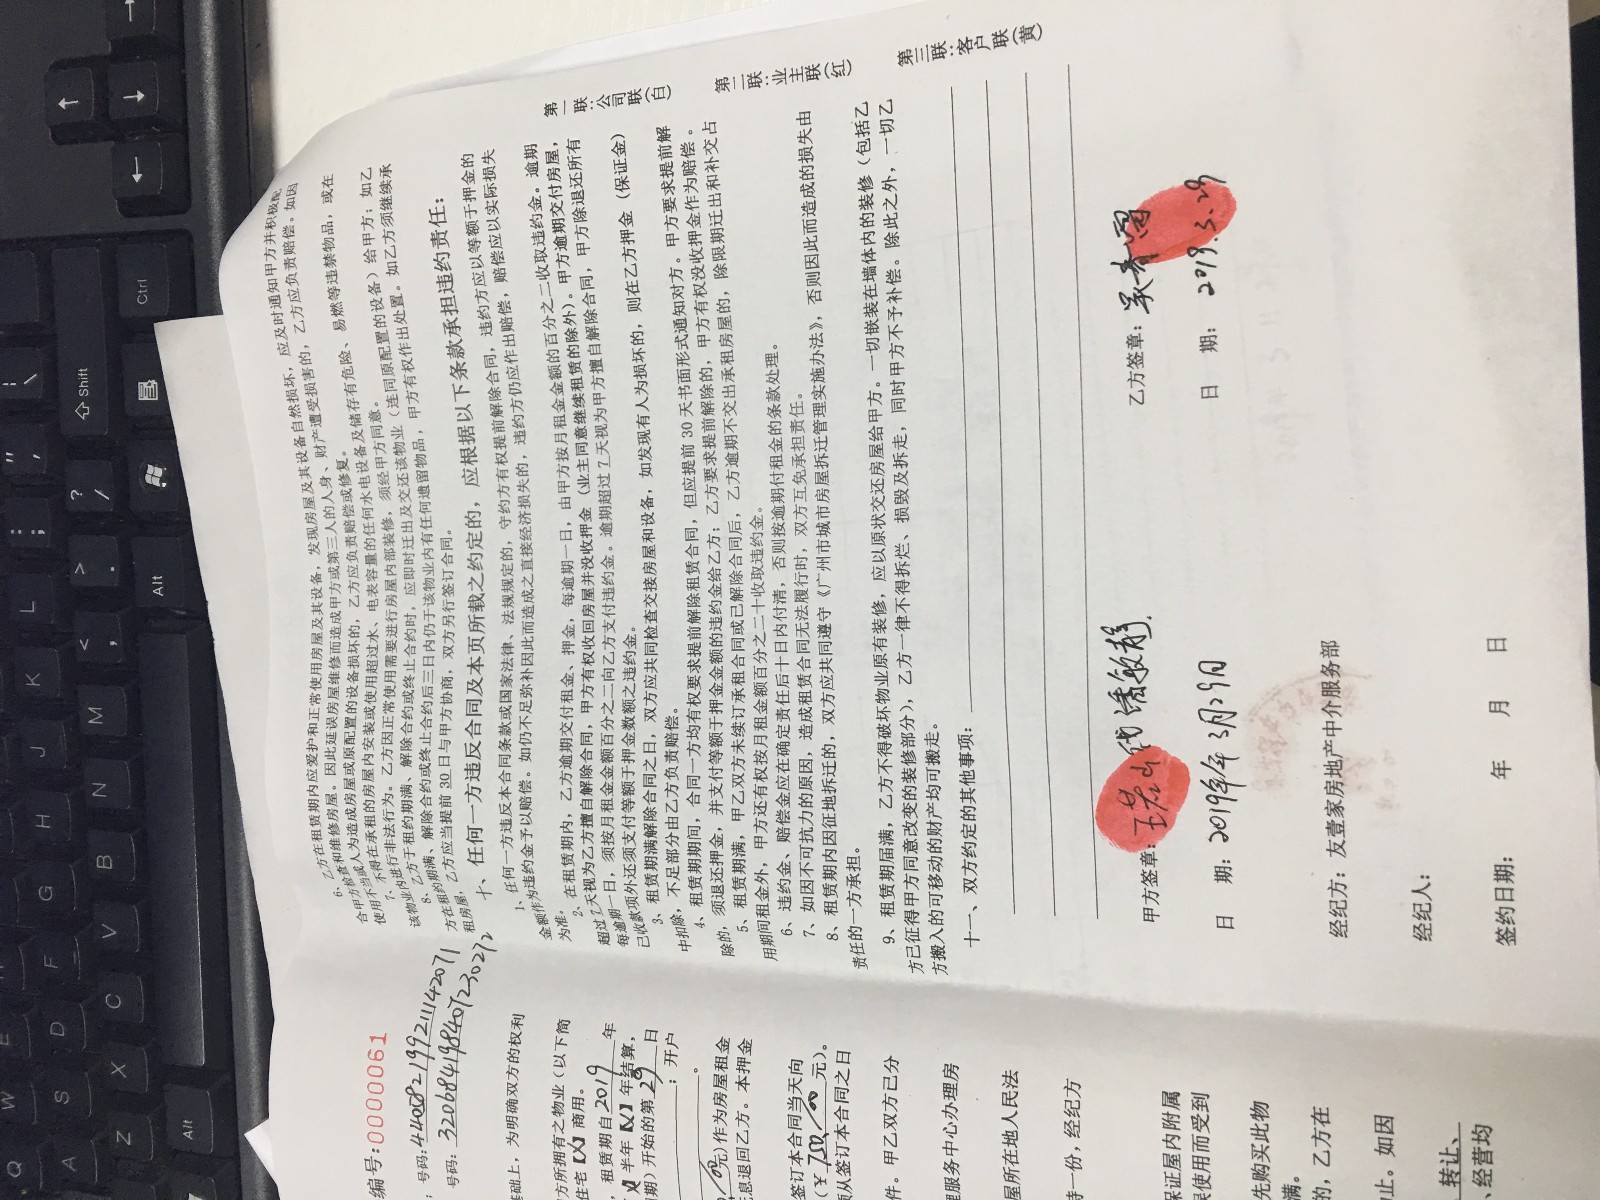 编号:0000061
号码: 440882199211142071
号码: 320684198407230272
基础上，为明确双方的权利
方所拥有之物业（以下简
住宅【X】商用。
，租赁期自 2019 年
【X】半年【X】年结算，
期）开始的第 29 日
；开户
元）作为房屋租金
息退回乙方。本押金
签订本合同当天向
元）。
须从签订本合同之日
件。甲乙双方已分
理服务中心办理房
屋所在地人民法
持一份，经纪方
保证屋内附属
误使用而受到
先购买此物
满。
的，乙方在
止。如因
转让、
经营均
6、乙方在租赁期内应爱护和正常使用房屋及其设备，发现房屋及其设备自然损坏，应及时通知甲方并积极配
合甲方检查和维修房屋。因此延误房屋维修而造成甲方或第三人的人身、财产遭受损害的，乙方应负责赔偿。如因
使用不当或人为造成房屋或原配置的设备损坏的，乙方应负责赔偿或修复。
7、不得在承租的房屋内安装或使用超过水、电表容量的任何水电设备及储存有危险、易燃等违禁物品，或在
该物业内进行非法行为。乙方因正常使用需要进行房屋内部装修，须经甲方同意。
8、乙方于租约期满、解除合约或终止合约时，应即时迁出及交还该物业（连同原配置的设备）给甲方；如乙
方在租约期满、解除合约或终止合约后三日内仍于该物业内有任何遗留物品，甲方有权作出处置。如乙方须继续承
租房屋，乙方应当提前 30 日与甲方协商，双方另行签订合同。
十、任何一方违反合同及本页所载之约定的，应根据以下条款承担违约责任：
1、任何一方违反本合同条款或国家法律、法规规定的，守约方有权提前解除合同，违约方应以等额于押金的
金额作为违约金予以赔偿。如仍不足弥补因此而造成之直接经济损失的，违约方仍应作出赔偿，赔偿应以实际损失
为准。
2、在租赁期内，乙方逾期交付租金、押金，每逾期一日，由甲方按月租金金额的百分之二收取违约金。逾期
超过7天视为乙方擅自解除合同，甲方有权收回房屋并没收押金（业主同意继续租赁的除外）。甲方逾期交付房屋，
每逾期一日，须按月租金金额百分之二向乙方支付违约金。逾期超过7天视为甲方擅自解除合同，甲方除退还所有
已收款项外还须支付等额于押金数额之违约金。
3、租赁期满解除合同之日，双方应共同检查交接房屋和设备，如发现有人为损坏的，则在乙方押金（保证金）
中扣除，不足部分由乙方负责赔偿。
4、租赁期期间，合同一方均有权要求提前解除租赁合同，但应提前 30 天书面形式通知对方。甲方要求提前解
除的，须退还押金，并支付等额于押金金额的违约金给乙方；乙方要求提前解除的，甲方有权没收押金作为赔偿。
5、租赁期满，甲乙双方未续订承租合同或已解除合同后，乙方逾期不交出承租房屋的，除限期迁出和补交占
用期间租金外，甲方还有权按月租金额百分之二十收取违约金。
6、违约金、赔偿金应在确定责任后十日内付清，否则按逾期付租金的条款处理。
7、如因不可抗力的原因，造成租赁合同无法履行时，双方互免承担责任。
8、租赁期内因征地拆迁的，双方应共同遵守《广州市城市房屋拆迁管理实施办法》，否则因此而造成的损失由
责任的一方承担。
9、租赁期届满，乙方不得破坏物业原有装修，应以原状交还房屋给甲方。一切嵌装在墙体内的装修（包括乙
方已征得甲方同意改变的装修部分），乙方一律不得拆烂、损毁及拆走，同时甲方不予补偿。除此之外，一切乙
方搬入的可移动的财产均可搬走。
十一、双方约定的其他事项：
甲方签章：
乙方签章：
日 期： 2019年3月29日
日 期： 2019.3.29
经纪方：友壹家房地产中介服务部
经纪人：
签约日期： 年 月 日
第一联：公司联（白）
第二联：业主联（红）
第三联：客户联（黄）
Shift
Ctrl
Alt
Alt
W
E
Q
S
D
F
G
H
J
K
L
A
Z
X
C
V
B
N
M